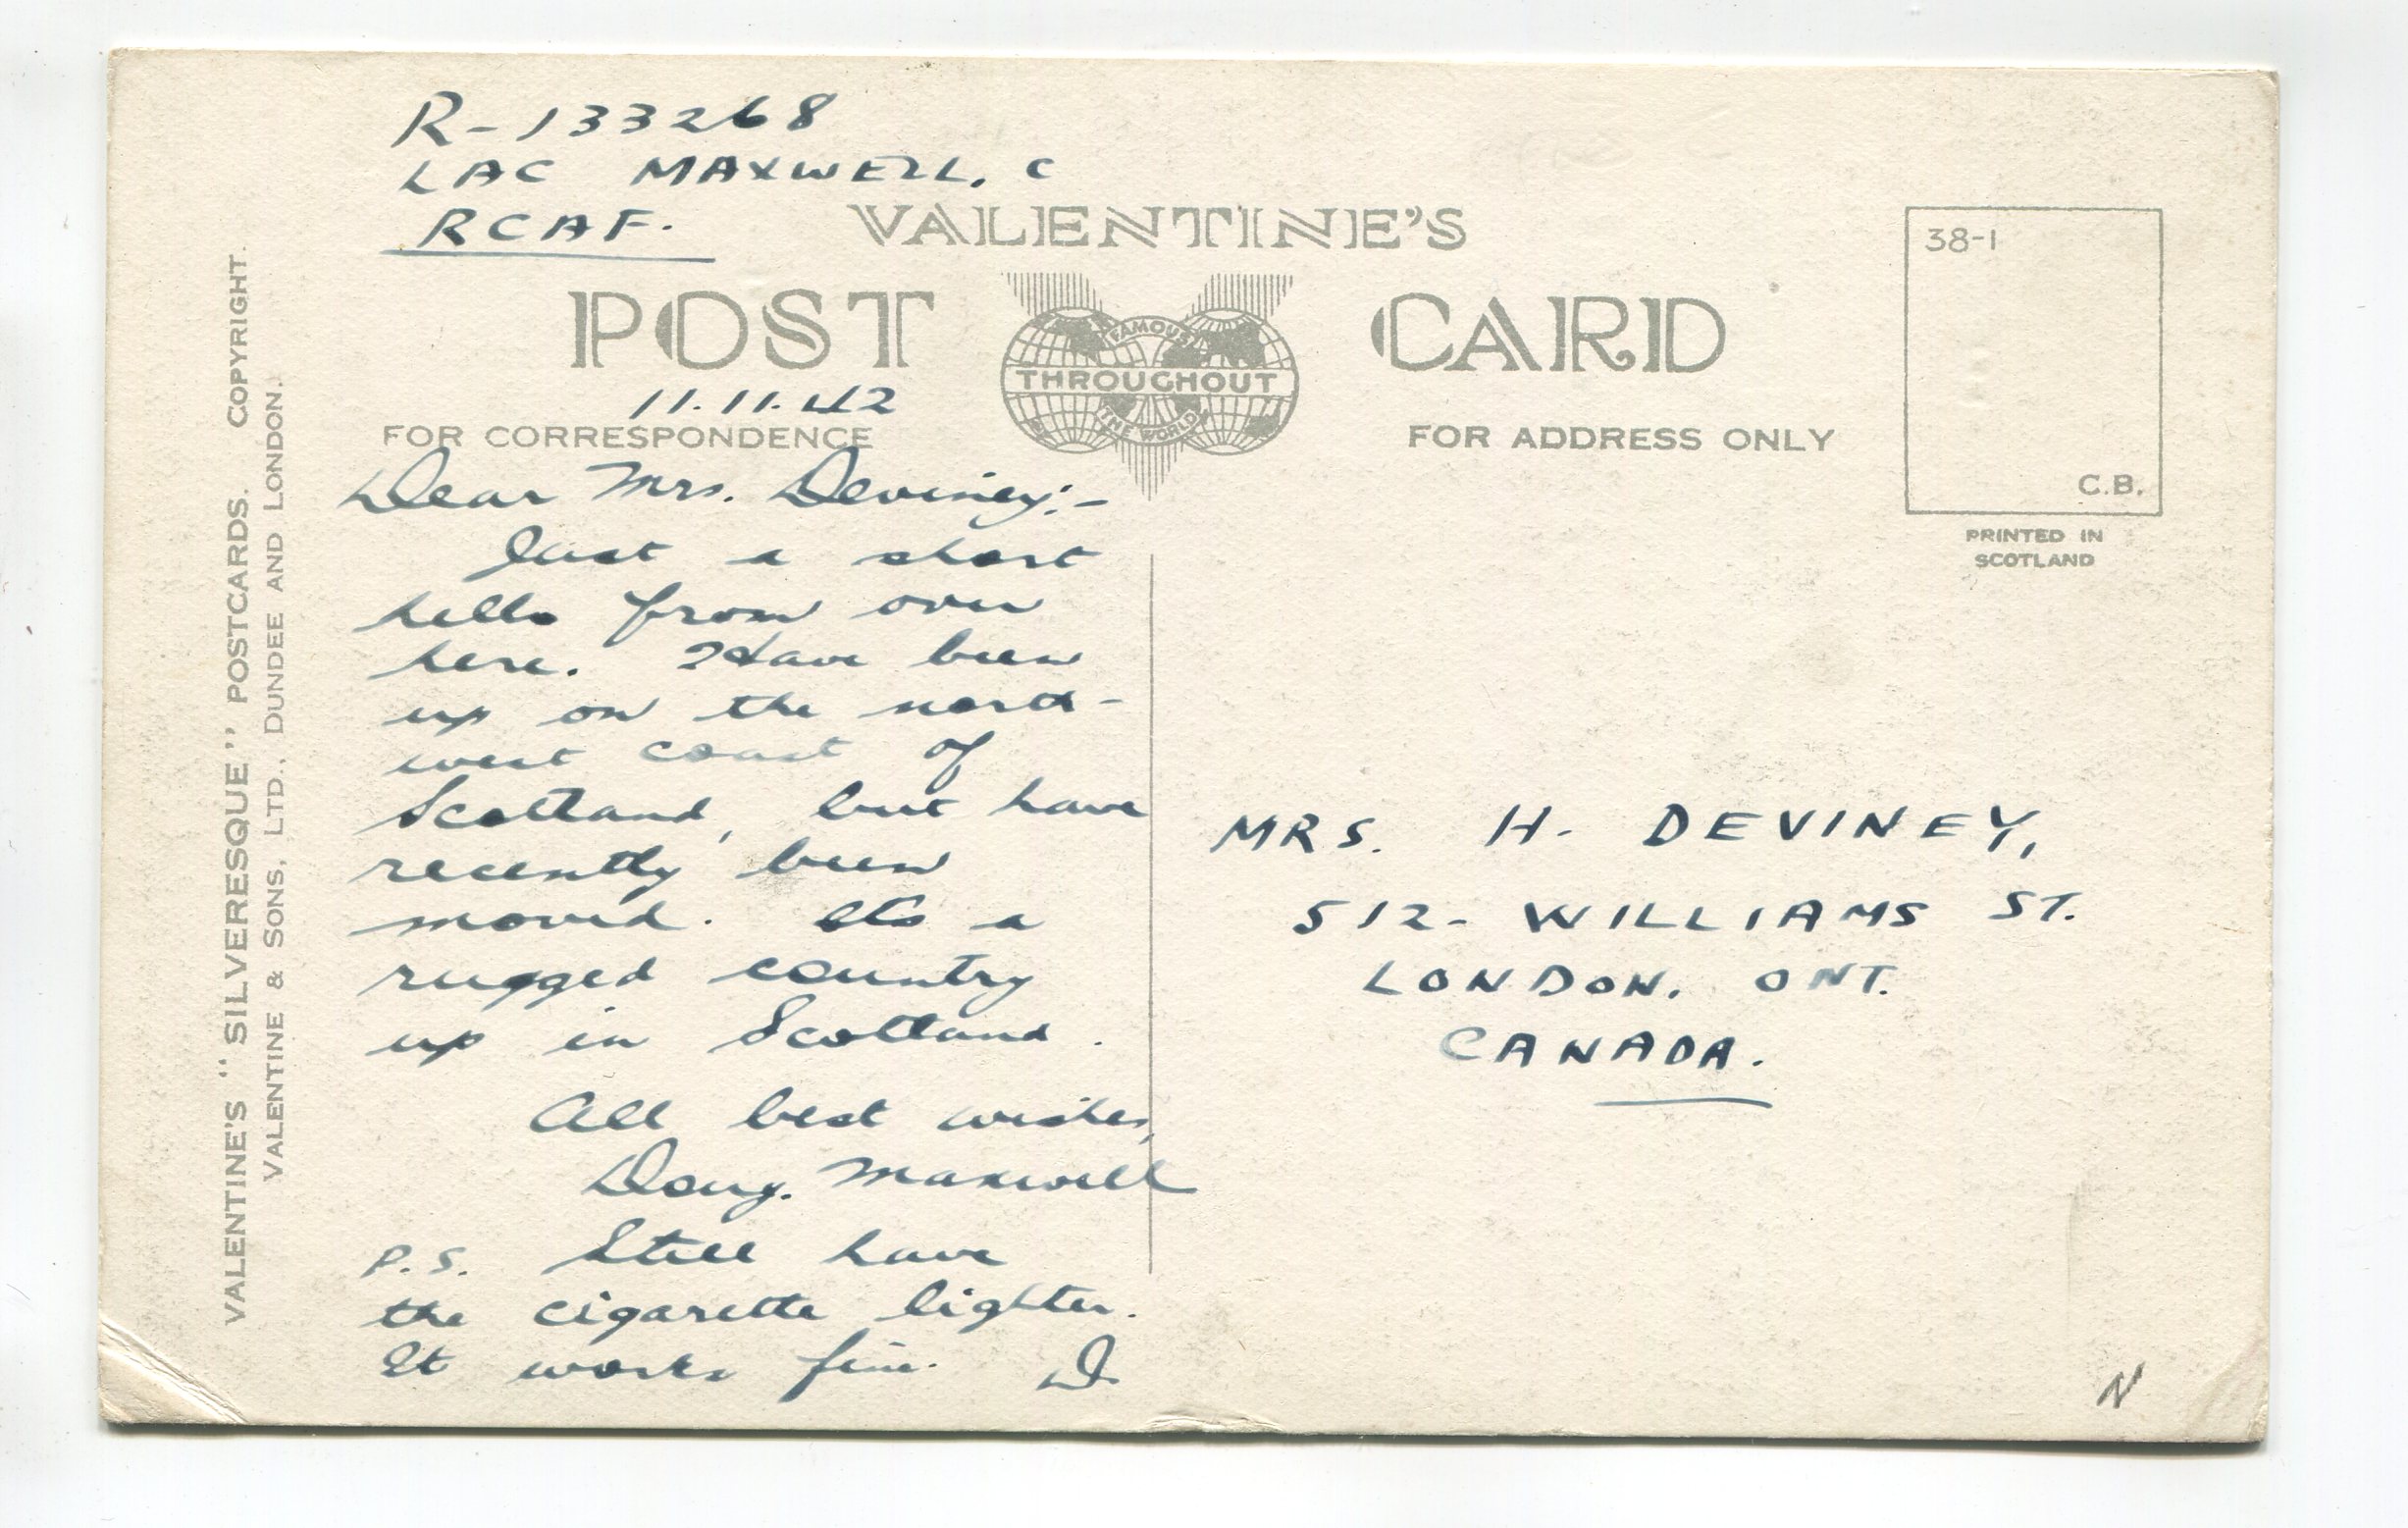 R-133268
LAC MAXWELL, C
RCAF.
VALENTINE'S
POST CARD
FAMOUS
THROUGHOUT
THE WORLD
38-1
C.B.
PRINTED IN
SCOTLAND
11.11.42
FOR CORRESPONDENCE
FOR ADDRESS ONLY
Dear Mrs. Deviney:-
Just a short
hello from over
here. Have been
up on the north-
west coast of
Scotland, but have
recently been
moved. Its a
rugged country
up in Scotland.
All best wishes,
Doug. Maxwell
P.S. Still have
the cigarette lighter.
It works fine. D
MRS. H. DEVINEY,
512- WILLIAMS ST.
LONDON, ONT.
CANADA.
N
VALENTINE'S "SILVERESQUE" POSTCARDS. COPYRIGHT.
VALENTINE & SONS, LTD., DUNDEE AND LONDON.